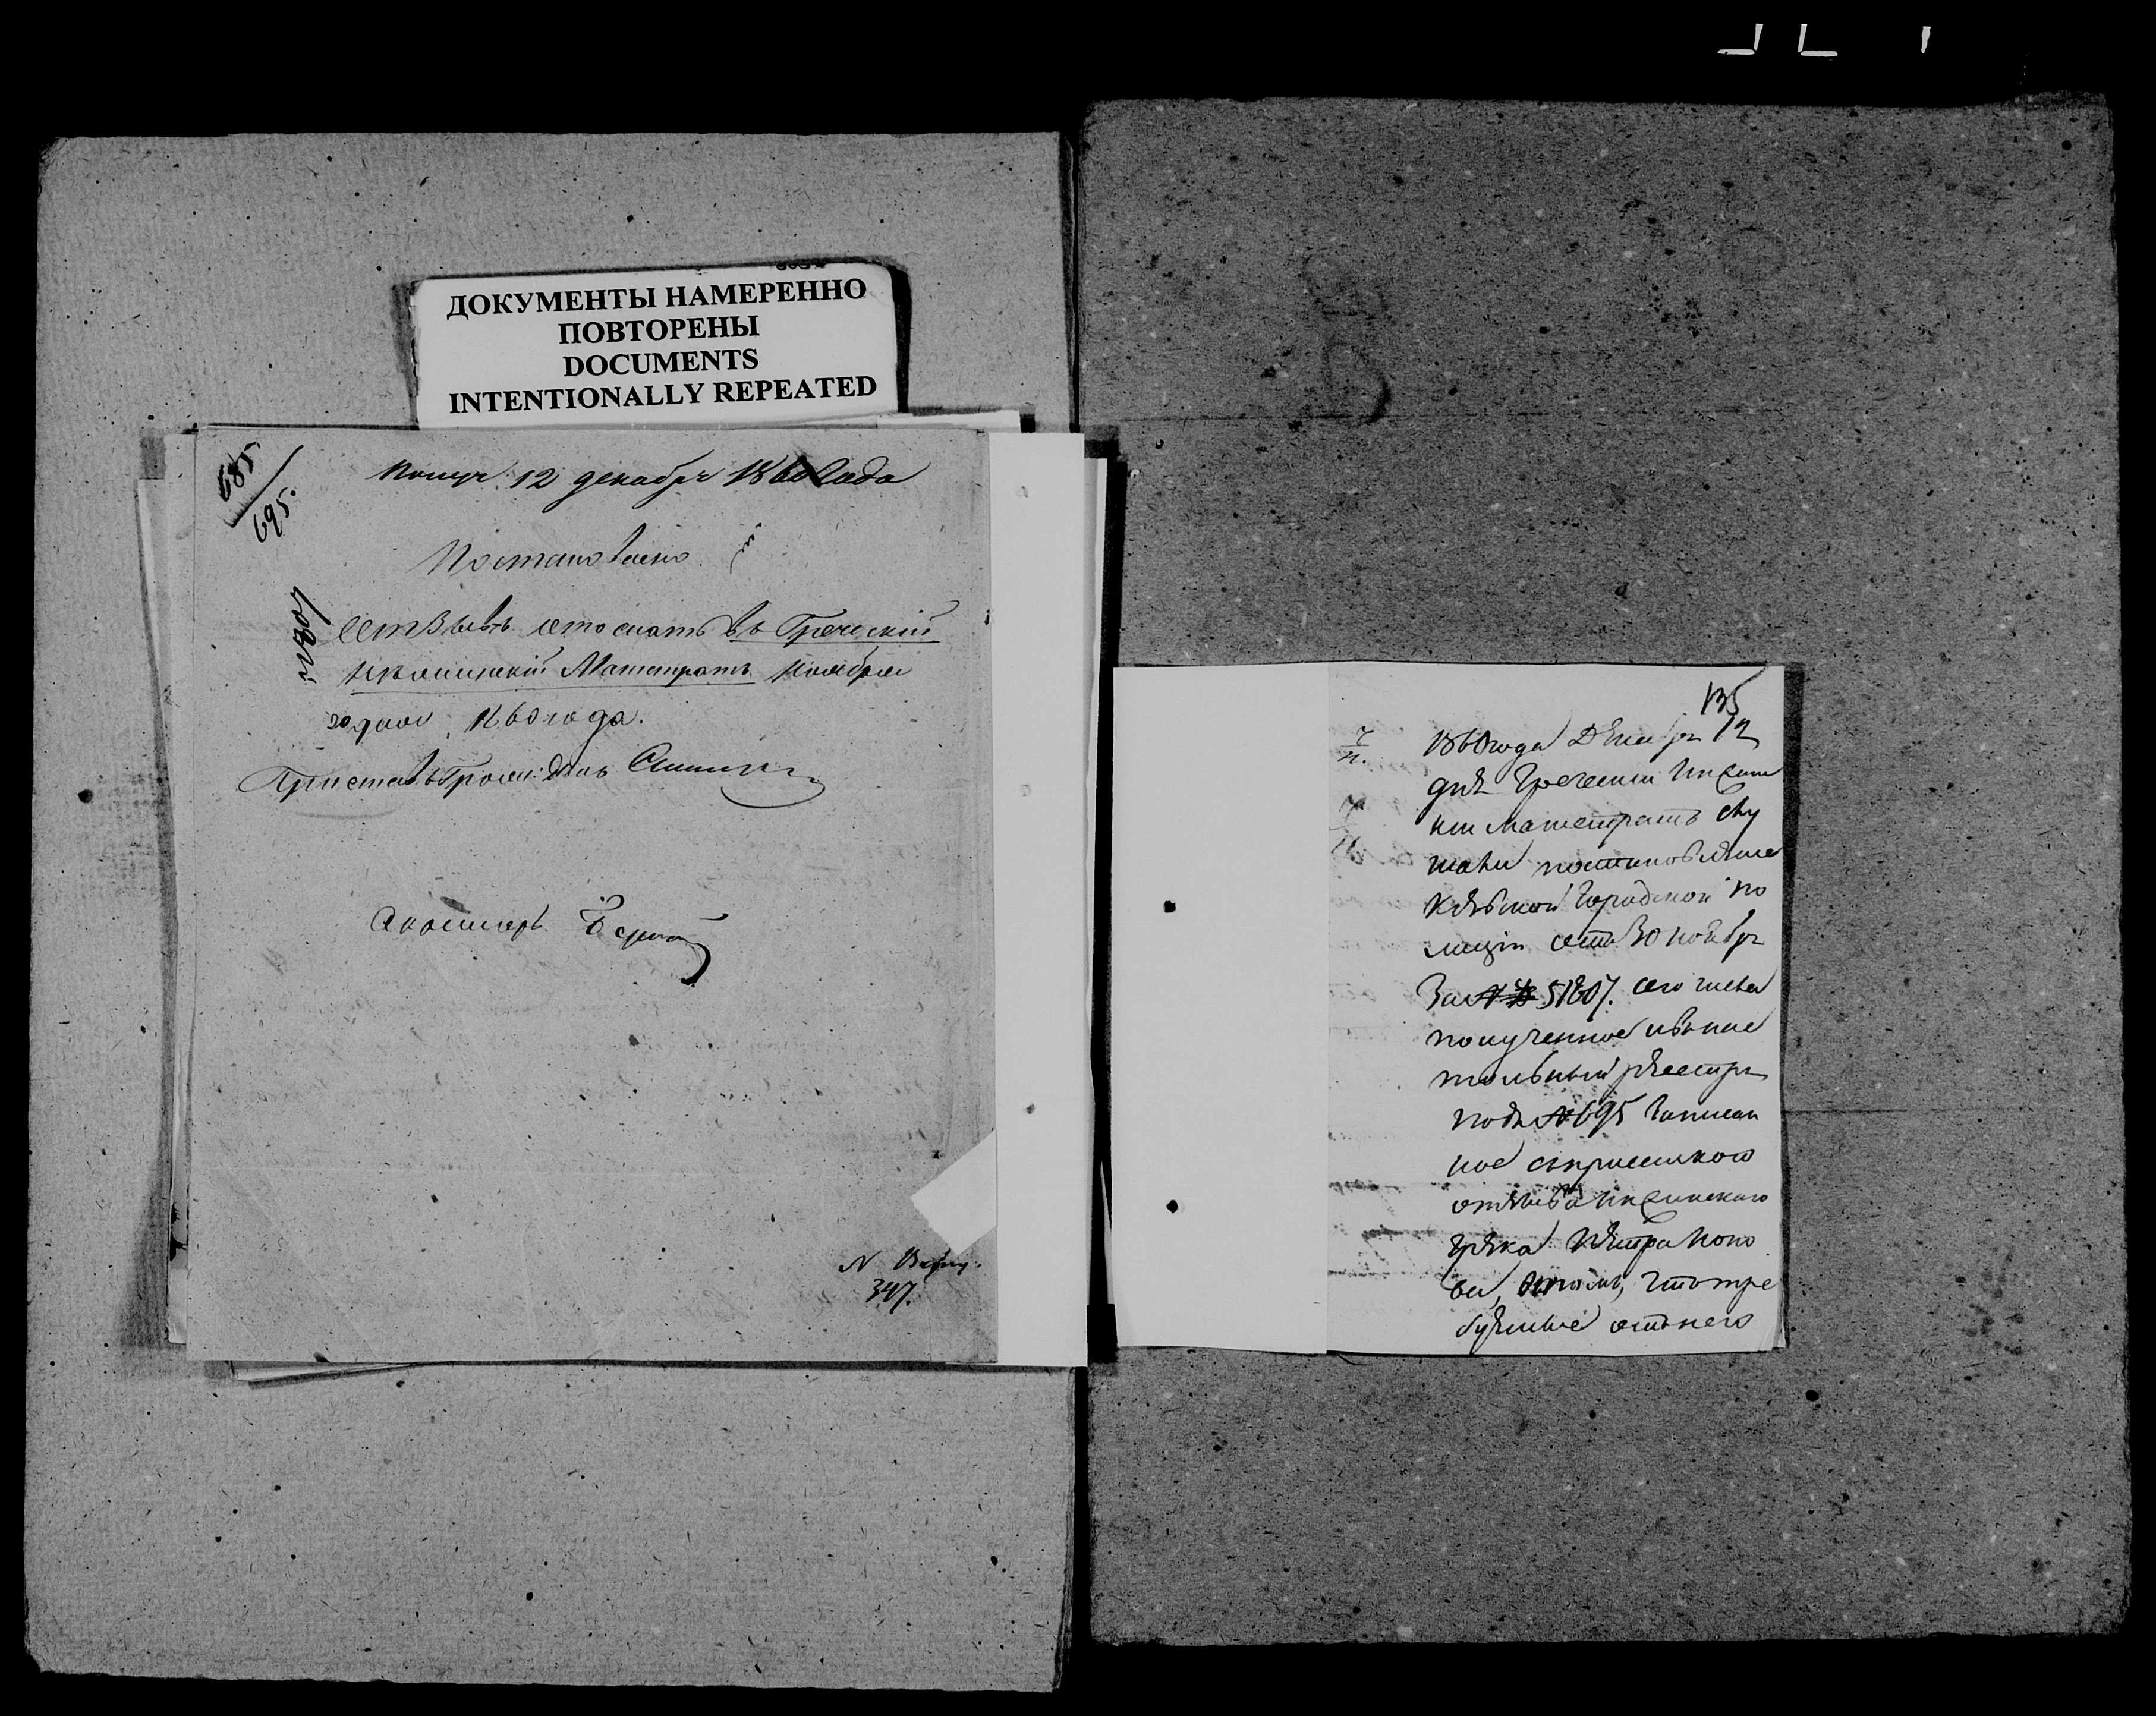 ДОКУМЕНТЫ НАМЕРЕННО
ПОВТОРЕНЫ
DOCUMENTS
INTENTIONALLY REPEATED
685
695.
Получ. 12 декабря 1860 года
Постановлено
51807
Отзывъ отослать въ Греческій
Нѣжинскій Магистратъ Ноября
30 дня, 1860 года.
Приставъ
347.
135
1860 года Декабря 12
дня Греческій Нѣжин
кій Магистратъ слу
шали постановленіе
Кіевской Городской По
лиціи отъ 30 Ноября
За № 51807. сего числа
полученное
реестръ
подъ № 695 записан
ное
отзыва Нѣжинскаго
Грека Петра Попо
ва, о томъ, что тре
отъ него